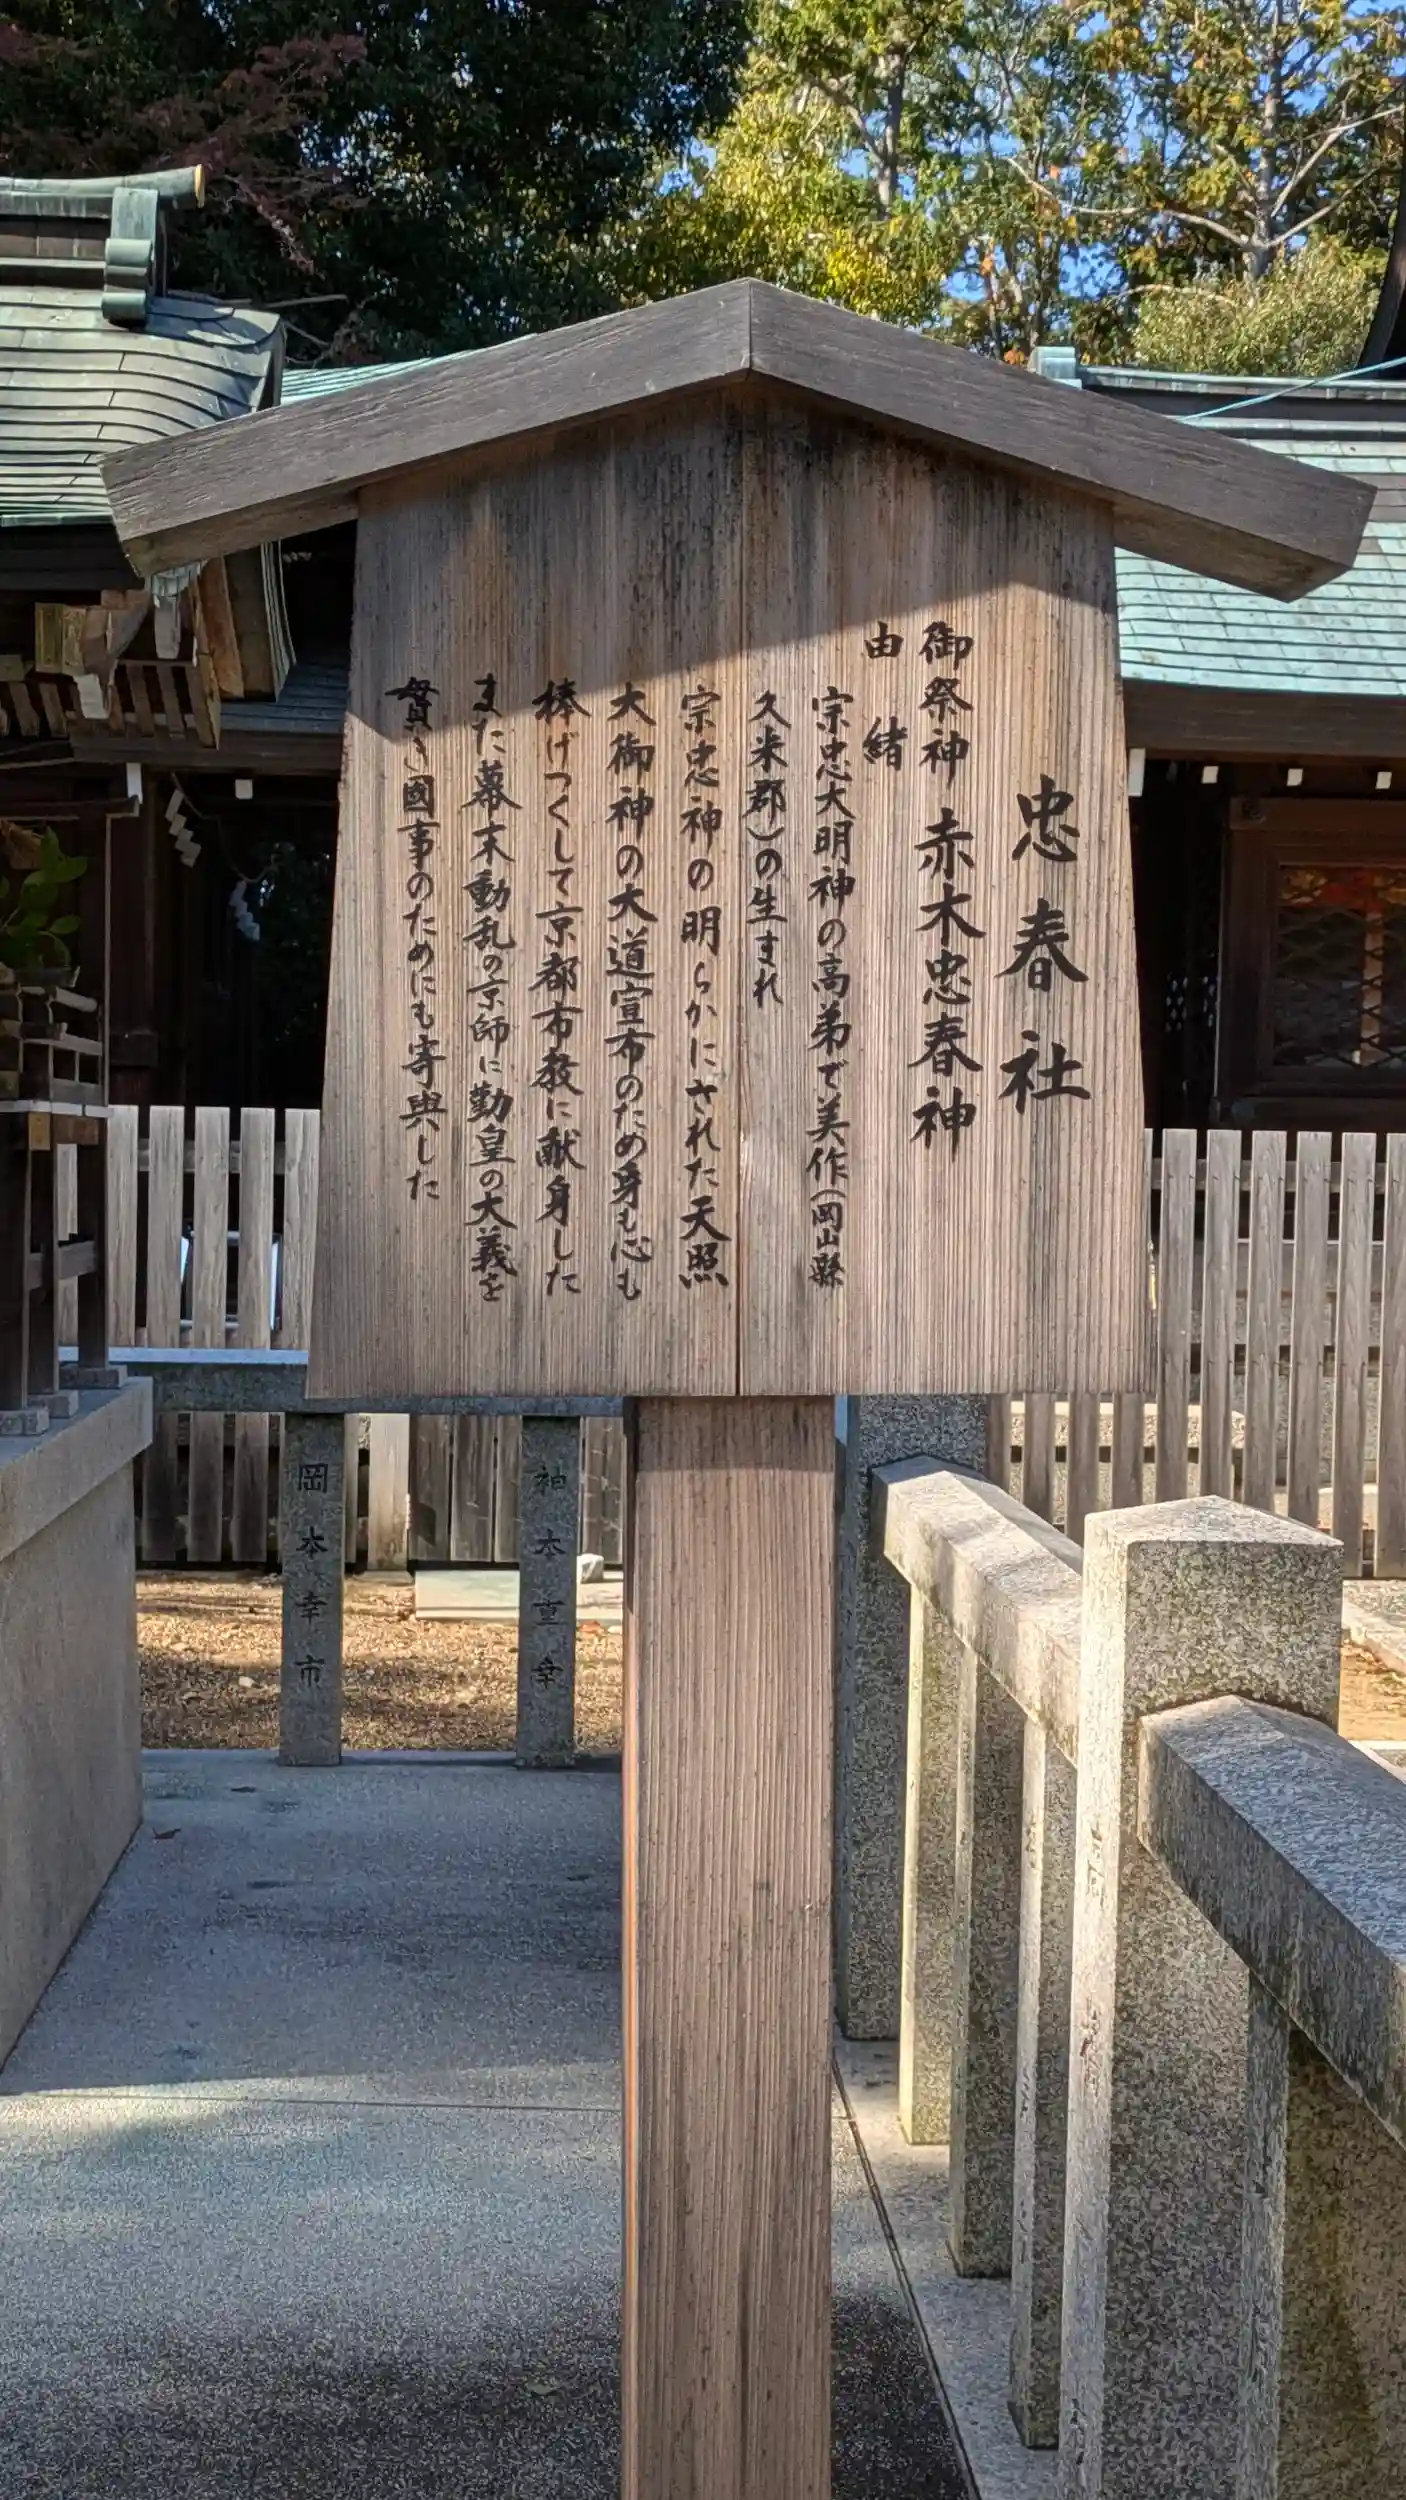 忠春社
御祭神 赤木忠春神
由緒
宗忠大明神の高弟で美作(岡山縣
久米郡)の生まれ
宗忠神の明らかにされた天照
大御神の大道宣布のため身も心も
捧げつくして京都布教に献身した
また幕末動乱の京師に勤皇の大義を
貫き國事のためにも寄與した
岡本幸市
袖本重幸